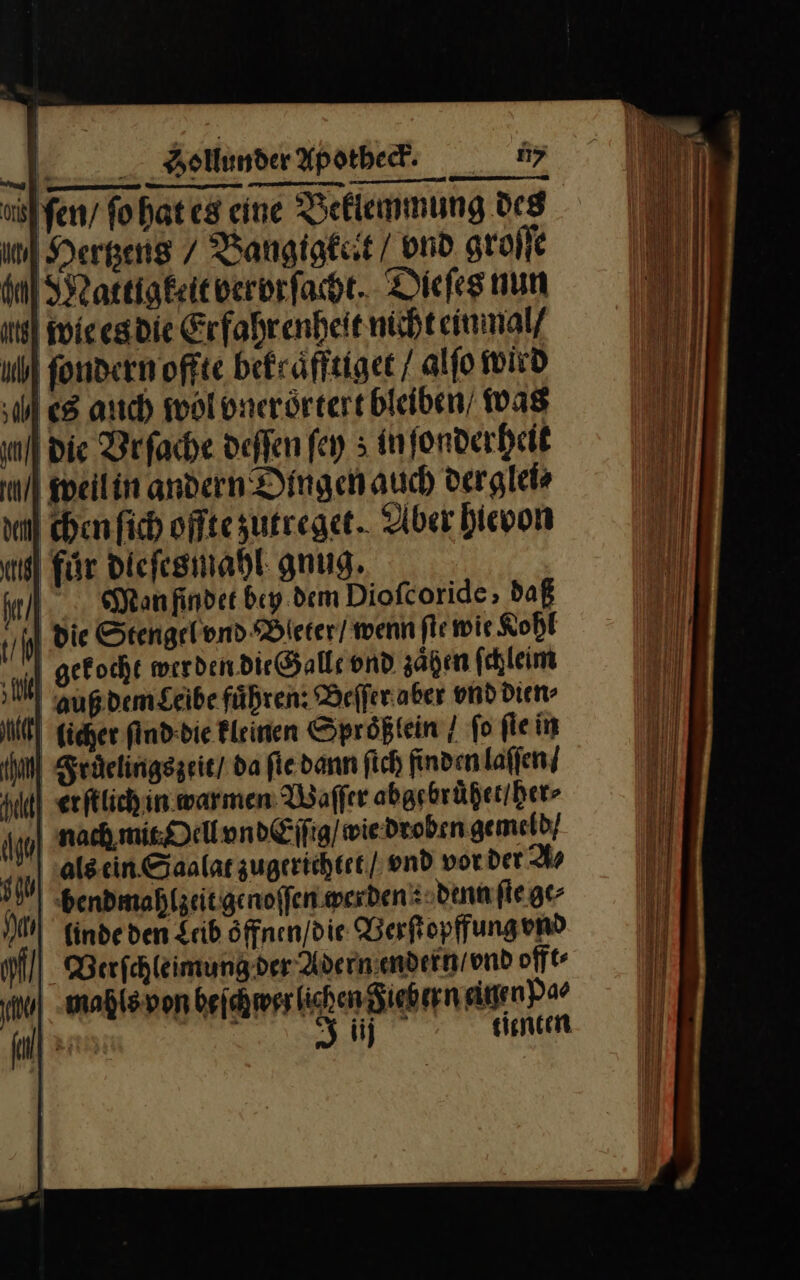 Hollunder Apotheck. 117
ſen/ ſo hat es eine Beklemmung des
Hertzens / Bangigkeit / vnd groſſe
Mattigkeit vervrſacht. Dieſes nun
wie es die Erfahrenheit nicht einmal/
ſondern offte bekraͤfftiget / alſo wird
es auch wol vneroͤrtert bleiben/ was
die Vrſache deſſen ſey ; in ſonderheit
weil in andern Dingen auch derglei⸗
chen ſich offte zutreget. Aber hievon
fuͤr dieſesmahl gnug.
Man findet bey dem Dioſcoride, daß
die Stengel vnd Bleter/ wenn ſie wie Kohl
gekocht werden die Galle vnd zaͤhen ſchleim
auß dem Leibe fuͤhren: Beſſer aber vnd dien⸗
licher ſind die kleinen Sproͤßlein / ſo ſie in
Fruͤelingszeit/ da ſie dann ſich finden laſſen/
erſtlich in warmen Waſſer abgebruͤhet/ her⸗
nach mit Oell vnd Eſſig/ wie droben gemeld/
als ein Saalat zugerichtet / vnd vor der A⸗
bendmahlzeit genoſſen werden : denn ſie ge⸗
linde den Leib oͤffnen/ die Verſtopffung vnd
Verſchleimung der Adern endern/ vnd offt⸗
mahls von beſchwerlichen Fiebern einen Pa⸗
J iij tienten